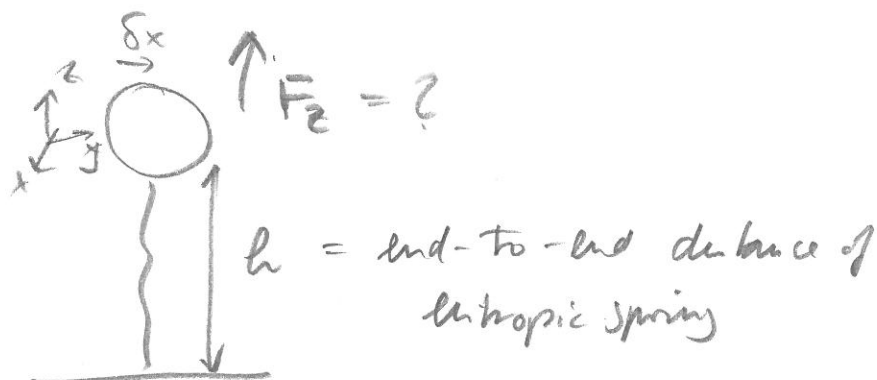 δx
z
F_z = ?
y
x
h = end-to-end distance of
entropic spring